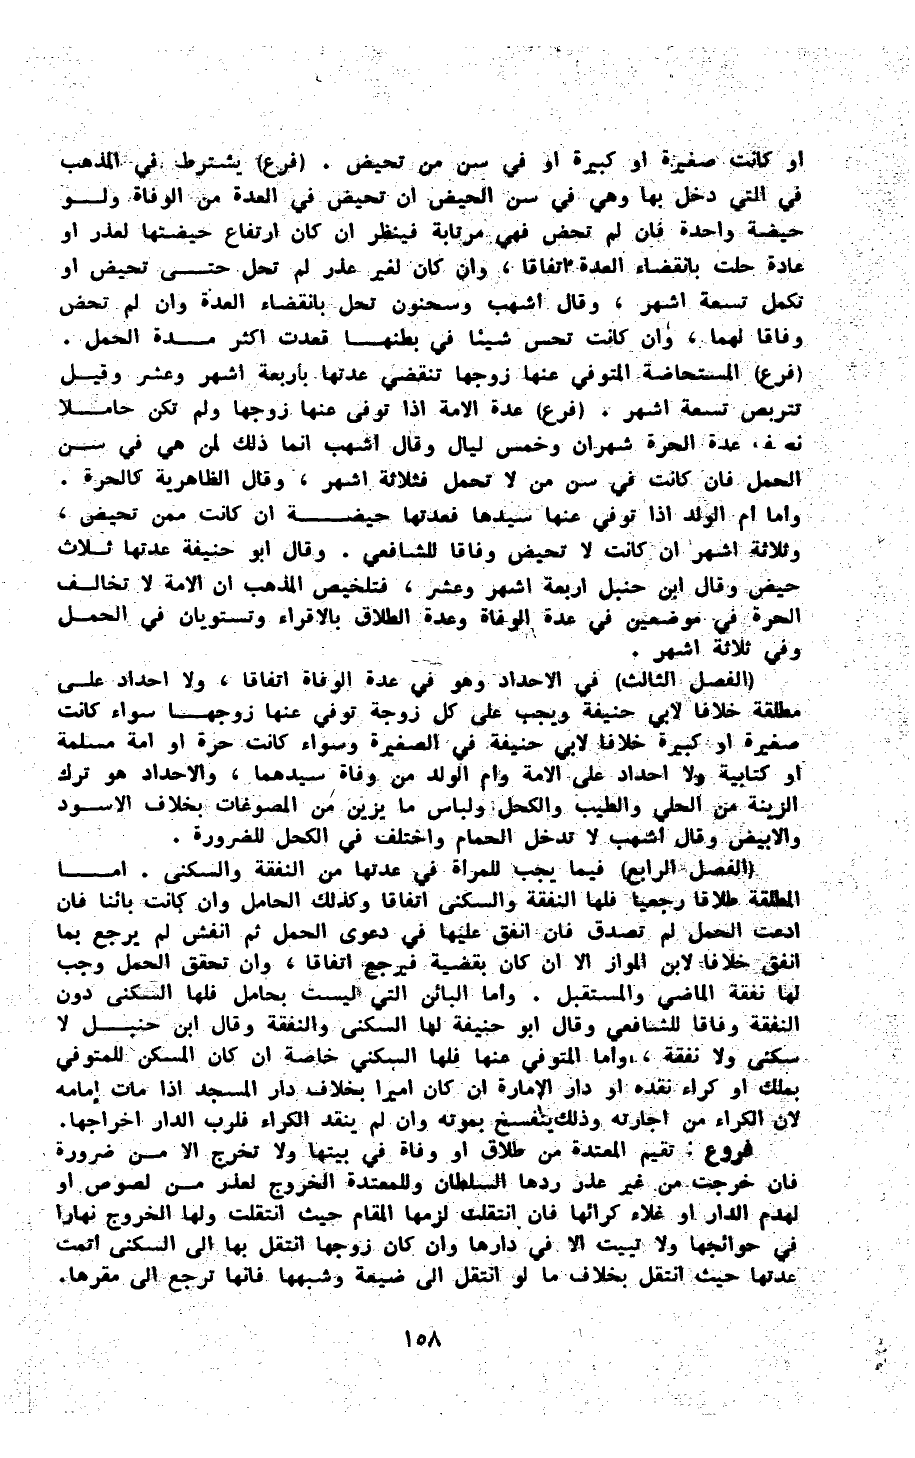 او كانت صغيرة او كبيرة او في سن من تحيض . (فرع) يشترط في المذهب
في التي دخل بها وهي في سن الحيض ان تحيض في العدة من الوفاة ولو
حيضة واحدة فان لم تحض فهي مرتابة فينظر ان كان ارتفاع حيضتها لعذر او
عادة حلت بانقضاء العدة اتفاقا ، وان كان لغير عذر لم تحل حتى تحيض او
تكمل تسعة اشهر ، وقال اشهب وسحنون تحل بانقضاء العدة وان لم تحض
وفاقا لهما ، وان كانت تحس شيئا في بطنها قعدت اكثر مدة الحمل .
(فرع) المستحاضة المتوفي عنها زوجها تنقضي عدتها باربعة اشهر وعشر وقيل
تتربص تسعة اشهر . (فرع) عدة الامة اذا توفى عنها زوجها ولم تكن حاملا
نصف عدة الحرة شهران وخمس ليال وقال اشهب انما ذلك لمن هي في سن
الحمل فان كانت في سن من لا تحمل فثلاثة اشهر ، وقال الظاهرية كالحرة .
واما ام الولد اذا توفي عنها سيدها فعدتها حيضة ان كانت ممن تحيض ،
وثلاثة اشهر ان كانت لا تحيض وفاقا للشافعي . وقال ابو حنيفة عدتها ثلاث
حيض وقال ابن حنبل اربعة اشهر وعشر ، فتلخيص المذهب ان الامة لا تخالف
الحرة في موضعين في عدة الوفاة وعدة الطلاق بالاقراء وتستويان في الحمل
وفي ثلاثة اشهر .
(الفصل الثالث) في الاحداد وهو في عدة الوفاة اتفاقا ، ولا احداد على
مطلقة خلافا لابي حنيفة ويجب على كل زوجة توفي عنها زوجها سواء كانت
صغيرة او كبيرة خلافا لابي حنيفة في الصغيرة وسواء كانت حرة او امة مسلمة
او كتابية ولا احداد على الامة وام الولد من وفاة سيدهما ، والاحداد هو ترك
الزينة من الحلي والطيب والكحل ولباس ما يزين من المصوغات بخلاف الاسود
والابيض وقال اشهب لا تدخل الحمام واختلف في الكحل للضرورة .
(الفصل الرابع) فيما يجب للمرأة في عدتها من النفقة والسكنى . اما
المطلقة طلاقا رجعيا فلها النفقة والسكنى اتفاقا وكذلك الحامل وان كانت بائنا فان
ادعت الحمل لم تصدق فان انفق عليها في دعوى الحمل ثم انفش لم يرجع بما
انفق خلافا لابن المواز الا ان كان بقضية فيرجع اتفاقا ، وان تحقق الحمل وجب
لها نفقة الماضي والمستقبل . واما البائن التي ليست بحامل فلها السكنى دون
النفقة وفاقا للشافعي وقال ابو حنيفة لها السكنى والنفقة وقال ابن حنبل لا
سكنى ولا نفقة ، واما المتوفي عنها فلها السكني خاصة ان كان المسكن للمتوفي
بملك او كراء نقده او دار الإمارة ان كان اميرا بخلاف دار المسجد اذا مات إمامه
لان الكراء من اجارته وذلك ينفسخ بموته وان لم ينقد الكراء فلرب الدار اخراجها.
فروع : تقيم المعتدة من طلاق او وفاة في بيتها ولا تخرج الا من ضرورة
فان خرجت من غير عذر ردها السلطان وللمعتدة الخروج لعذر من لصوص او
لهدم الدار او غلاء كرائها فان انتقلت لزمها المقام حيث انتقلت ولها الخروج نهارا
في حوائجها ولا تبيت الا في دارها وان كان زوجها انتقل بها الى السكنى اتمت
عدتها حيث انتقل بخلاف ما لو انتقل الى ضيعة وشبهها فانها ترجع الى مقرها.
١٥٨